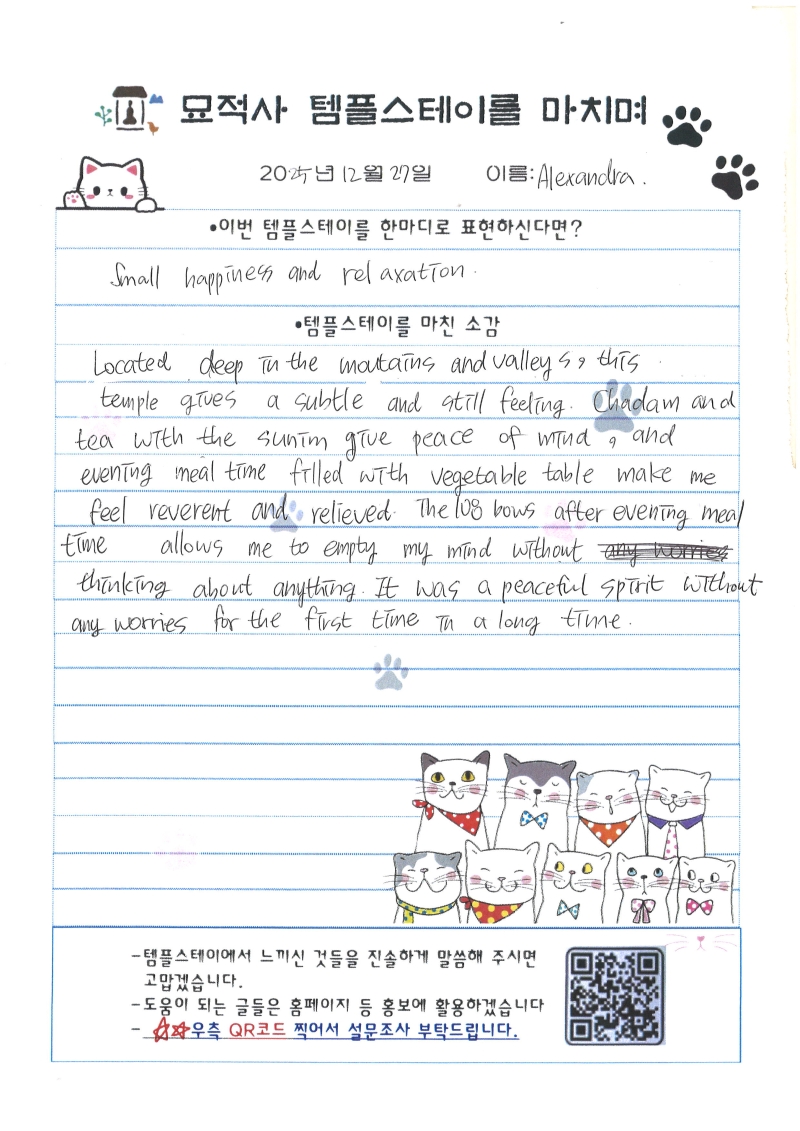 묘적사 템플스테이를 마치며
2025년 12월 27일 이름: Alexandra.
•이번 템플스테이를 한마디로 표현하신다면?
Small happiness and relaxation.
•템플스테이를 마친 소감
Located deep in the moutains and valleys, this
temple gives a subtle and still feeling. Chadam and
tea with the sunim give peace of mind, and
evening meal time filled with vegetable table make me
feel reverent and relieved. The 108 bows after evening meal
time allows me to empty my mind without any worries
thinking about anything. It was a peaceful spirit without
any worries for the first time in a long time.
-템플스테이에서 느끼신 것들을 진솔하게 말씀해 주시면
고맙겠습니다.
-도움이 되는 글들은 홈페이지 등 홍보에 활용하겠습니다
- ☆☆우측 QR코드 찍어서 설문조사 부탁드립니다.